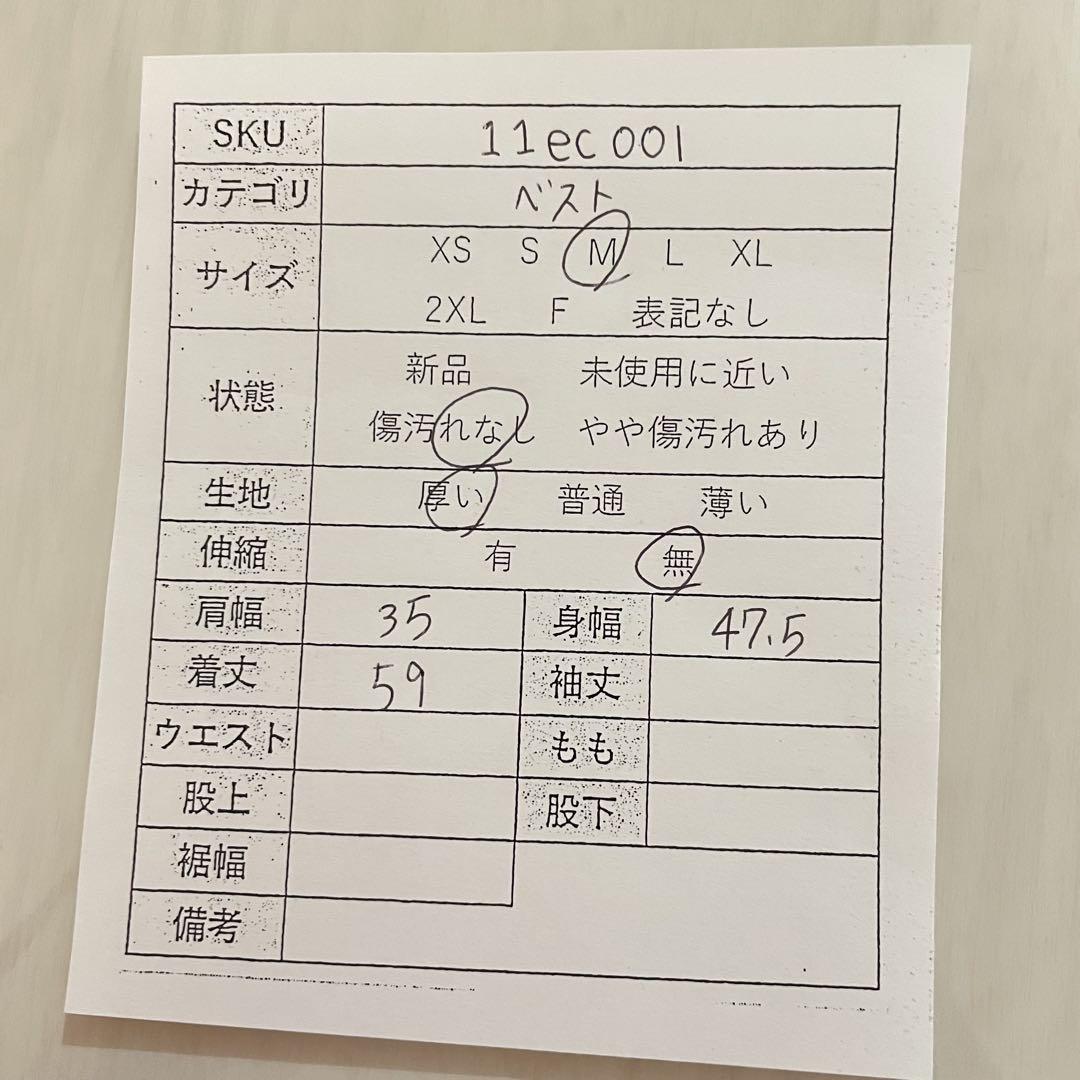 SKU 11ec001
カテゴリ ベスト
サイズ XS S M L XL
2XL F 表記なし
状態 新品 未使用に近い
傷汚れなし やや傷汚れあり
生地 厚い 普通 薄い
伸縮 有 無
肩幅 35 身幅 47.5
着丈 59 袖丈
ウエスト もも
股上 股下
裾幅
備考